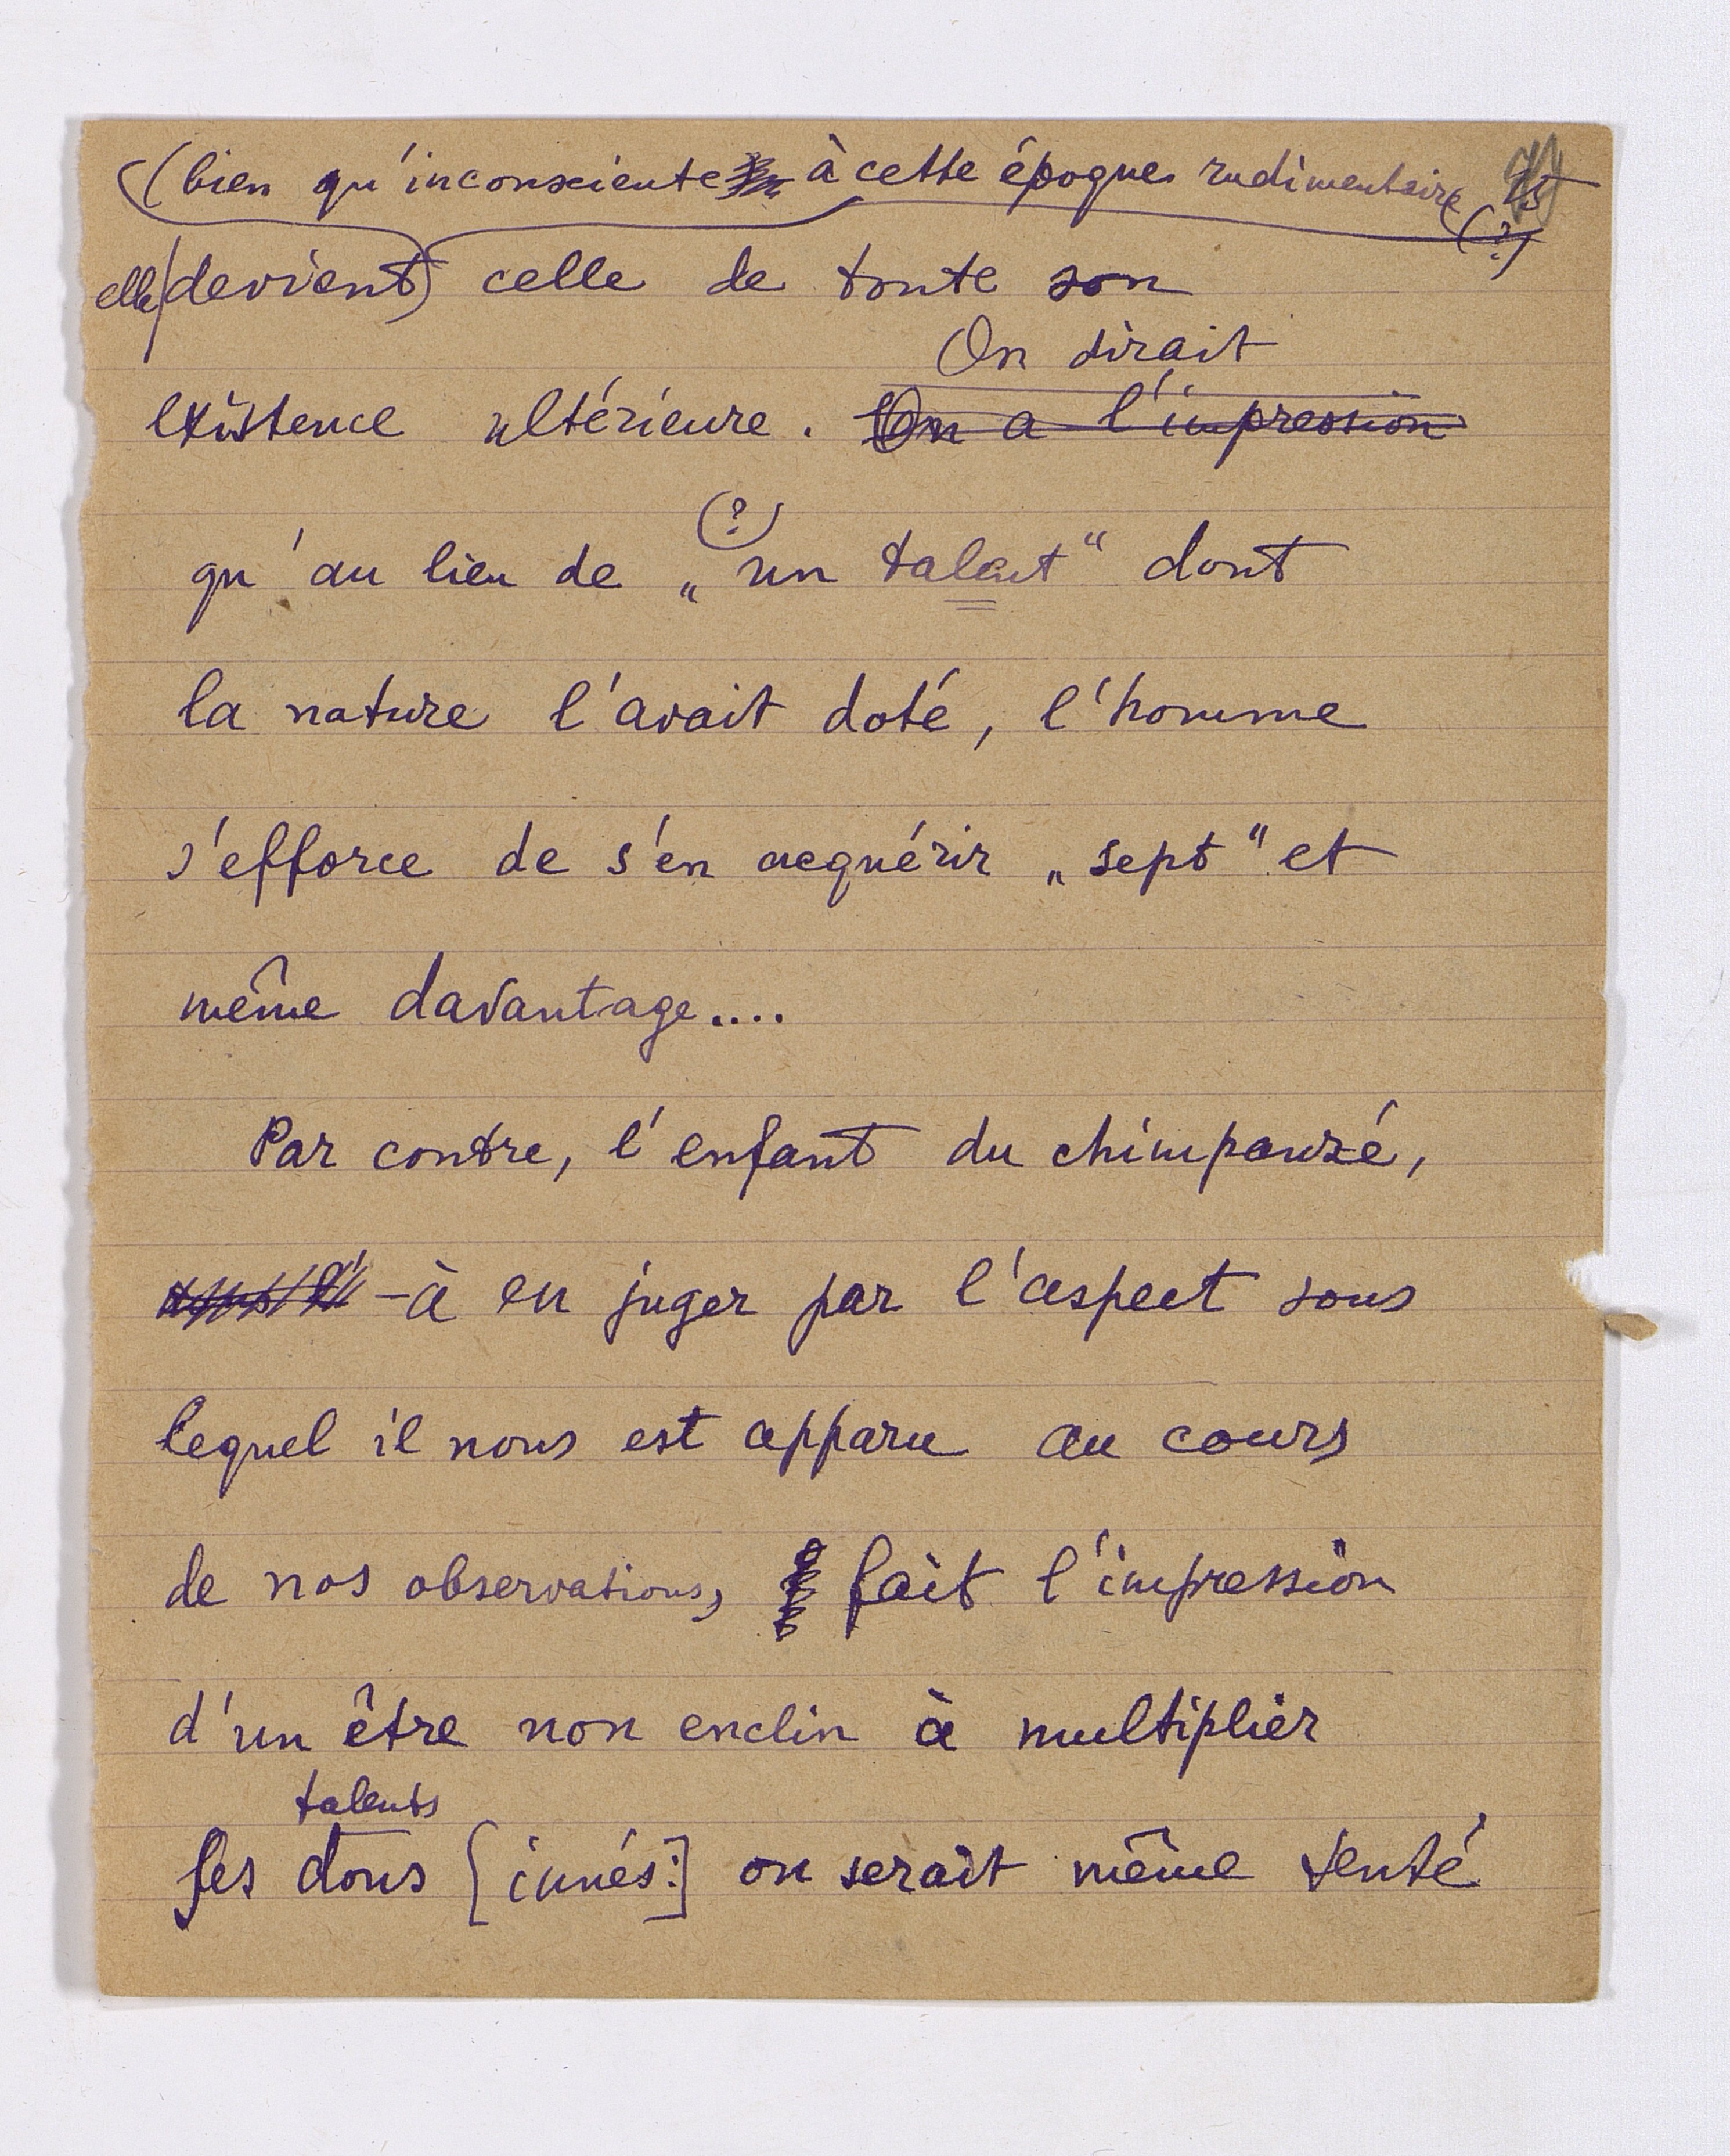 (bien qu'inconsciente à cette époque rudimentaire
(?)
elle devient) celle de toute son
On dirait
existence ultérieure. On a l'impression
(?)
qu'au lieu de „un talent“ dont
la nature l'avait doté, l'homme
s'efforce de s'en acquérir „sept“ et
même davantage....
Par contre, l'enfant du chimpanzé,
– à en juger par l'aspect sous
lequel il nous est apparu au cours
de nos observations, fait l'impression
d'un être non enclin à multiplier
talents
ses dons [innés:] on serait même tenté